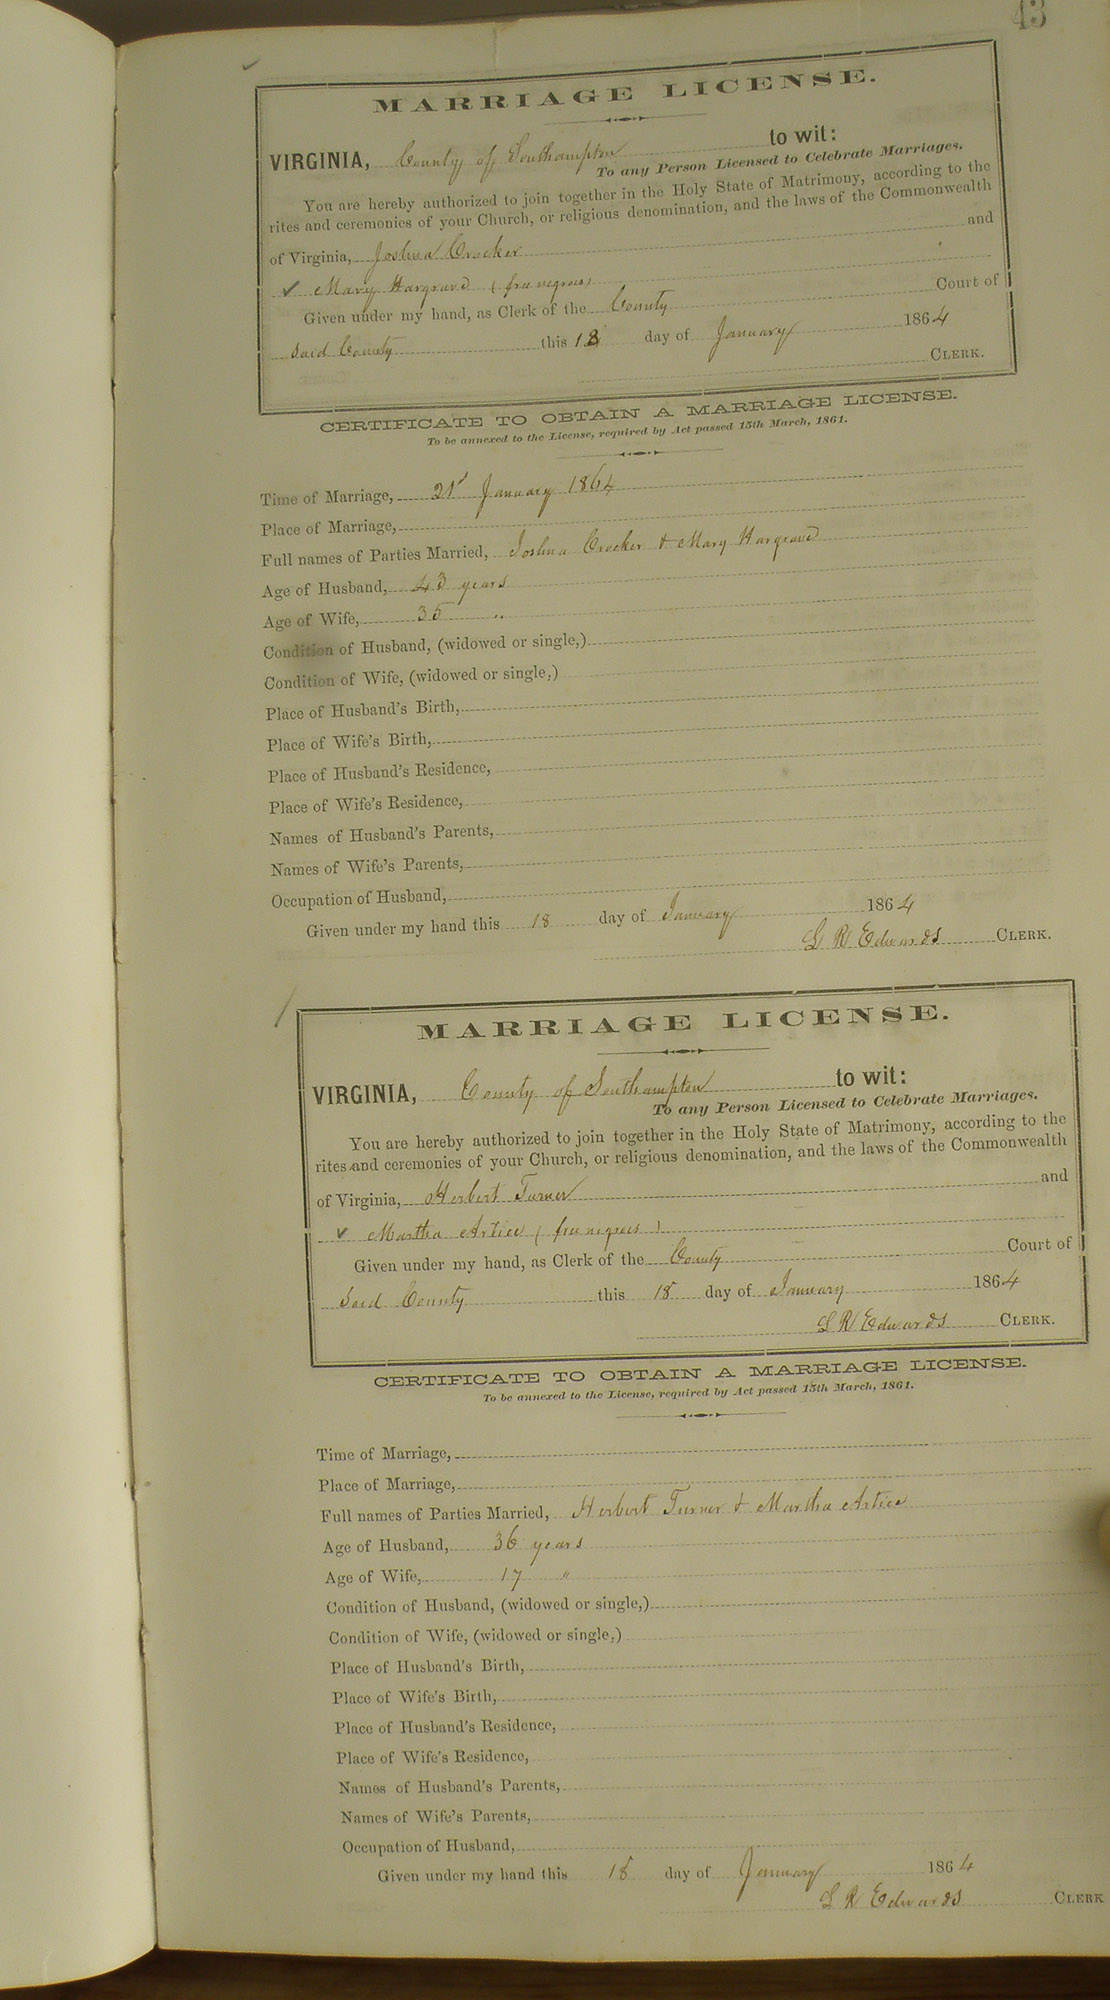 43
MARRIAGE LICENSE.
VIRGINIA, County of Southampton to wit:
To any Person Licensed to Celebrate Marriages.
You are hereby authorized to join together in the Holy State of Matrimony, according to the
rites and ceremonies of your Church, or religious denomination, and the laws of the Commonwealth
of Virginia, Joshua Crocker and
✓ Mary Hargrave (free negroes)
Given under my hand, as Clerk of the County Court of
Said County this 18 day of January 1864
CLERK.
CERTIFICATE TO OBTAIN A MARRIAGE LICENSE.
To be annexed to the License, required by Act passed 15th March, 1861.
Time of Marriage, 21st January 1864
Place of Marriage,
Full names of Parties Married, Joshua Crocker & Mary Hargrave
Age of Husband, 43 years
Age of Wife, 35 "
Condition of Husband, (widowed or single,)
Condition of Wife, (widowed or single,)
Place of Husband's Birth,
Place of Wife's Birth,
Place of Husband's Residence,
Place of Wife's Residence,
Names of Husband's Parents,
Names of Wife's Parents,
Occupation of Husband,
Given under my hand this 18 day of January 1864
L R Edwards CLERK.
MARRIAGE LICENSE.
VIRGINIA, County of Southampton to wit:
To any Person Licensed to Celebrate Marriages.
You are hereby authorized to join together in the Holy State of Matrimony, according to the
rites and ceremonies of your Church, or religious denomination, and the laws of the Commonwealth
of Virginia, Herbert Turner and
✓ Martha Artice (free negroes)
Given under my hand, as Clerk of the County Court of
Said County this 18 day of January 1864
L R Edwards CLERK.
CERTIFICATE TO OBTAIN A MARRIAGE LICENSE.
To be annexed to the License, required by Act passed 15th March, 1861.
Time of Marriage,
Place of Marriage,
Full names of Parties Married, Herbert Turner & Martha Artice
Age of Husband, 36 years
Age of Wife, 17 "
Condition of Husband, (widowed or single,)
Condition of Wife, (widowed or single,)
Place of Husband's Birth,
Place of Wife's Birth,
Place of Husband's Residence,
Place of Wife's Residence,
Names of Husband's Parents,
Names of Wife's Parents,
Occupation of Husband,
Given under my hand this 18 day of January 1864
L R Edwards CLERK